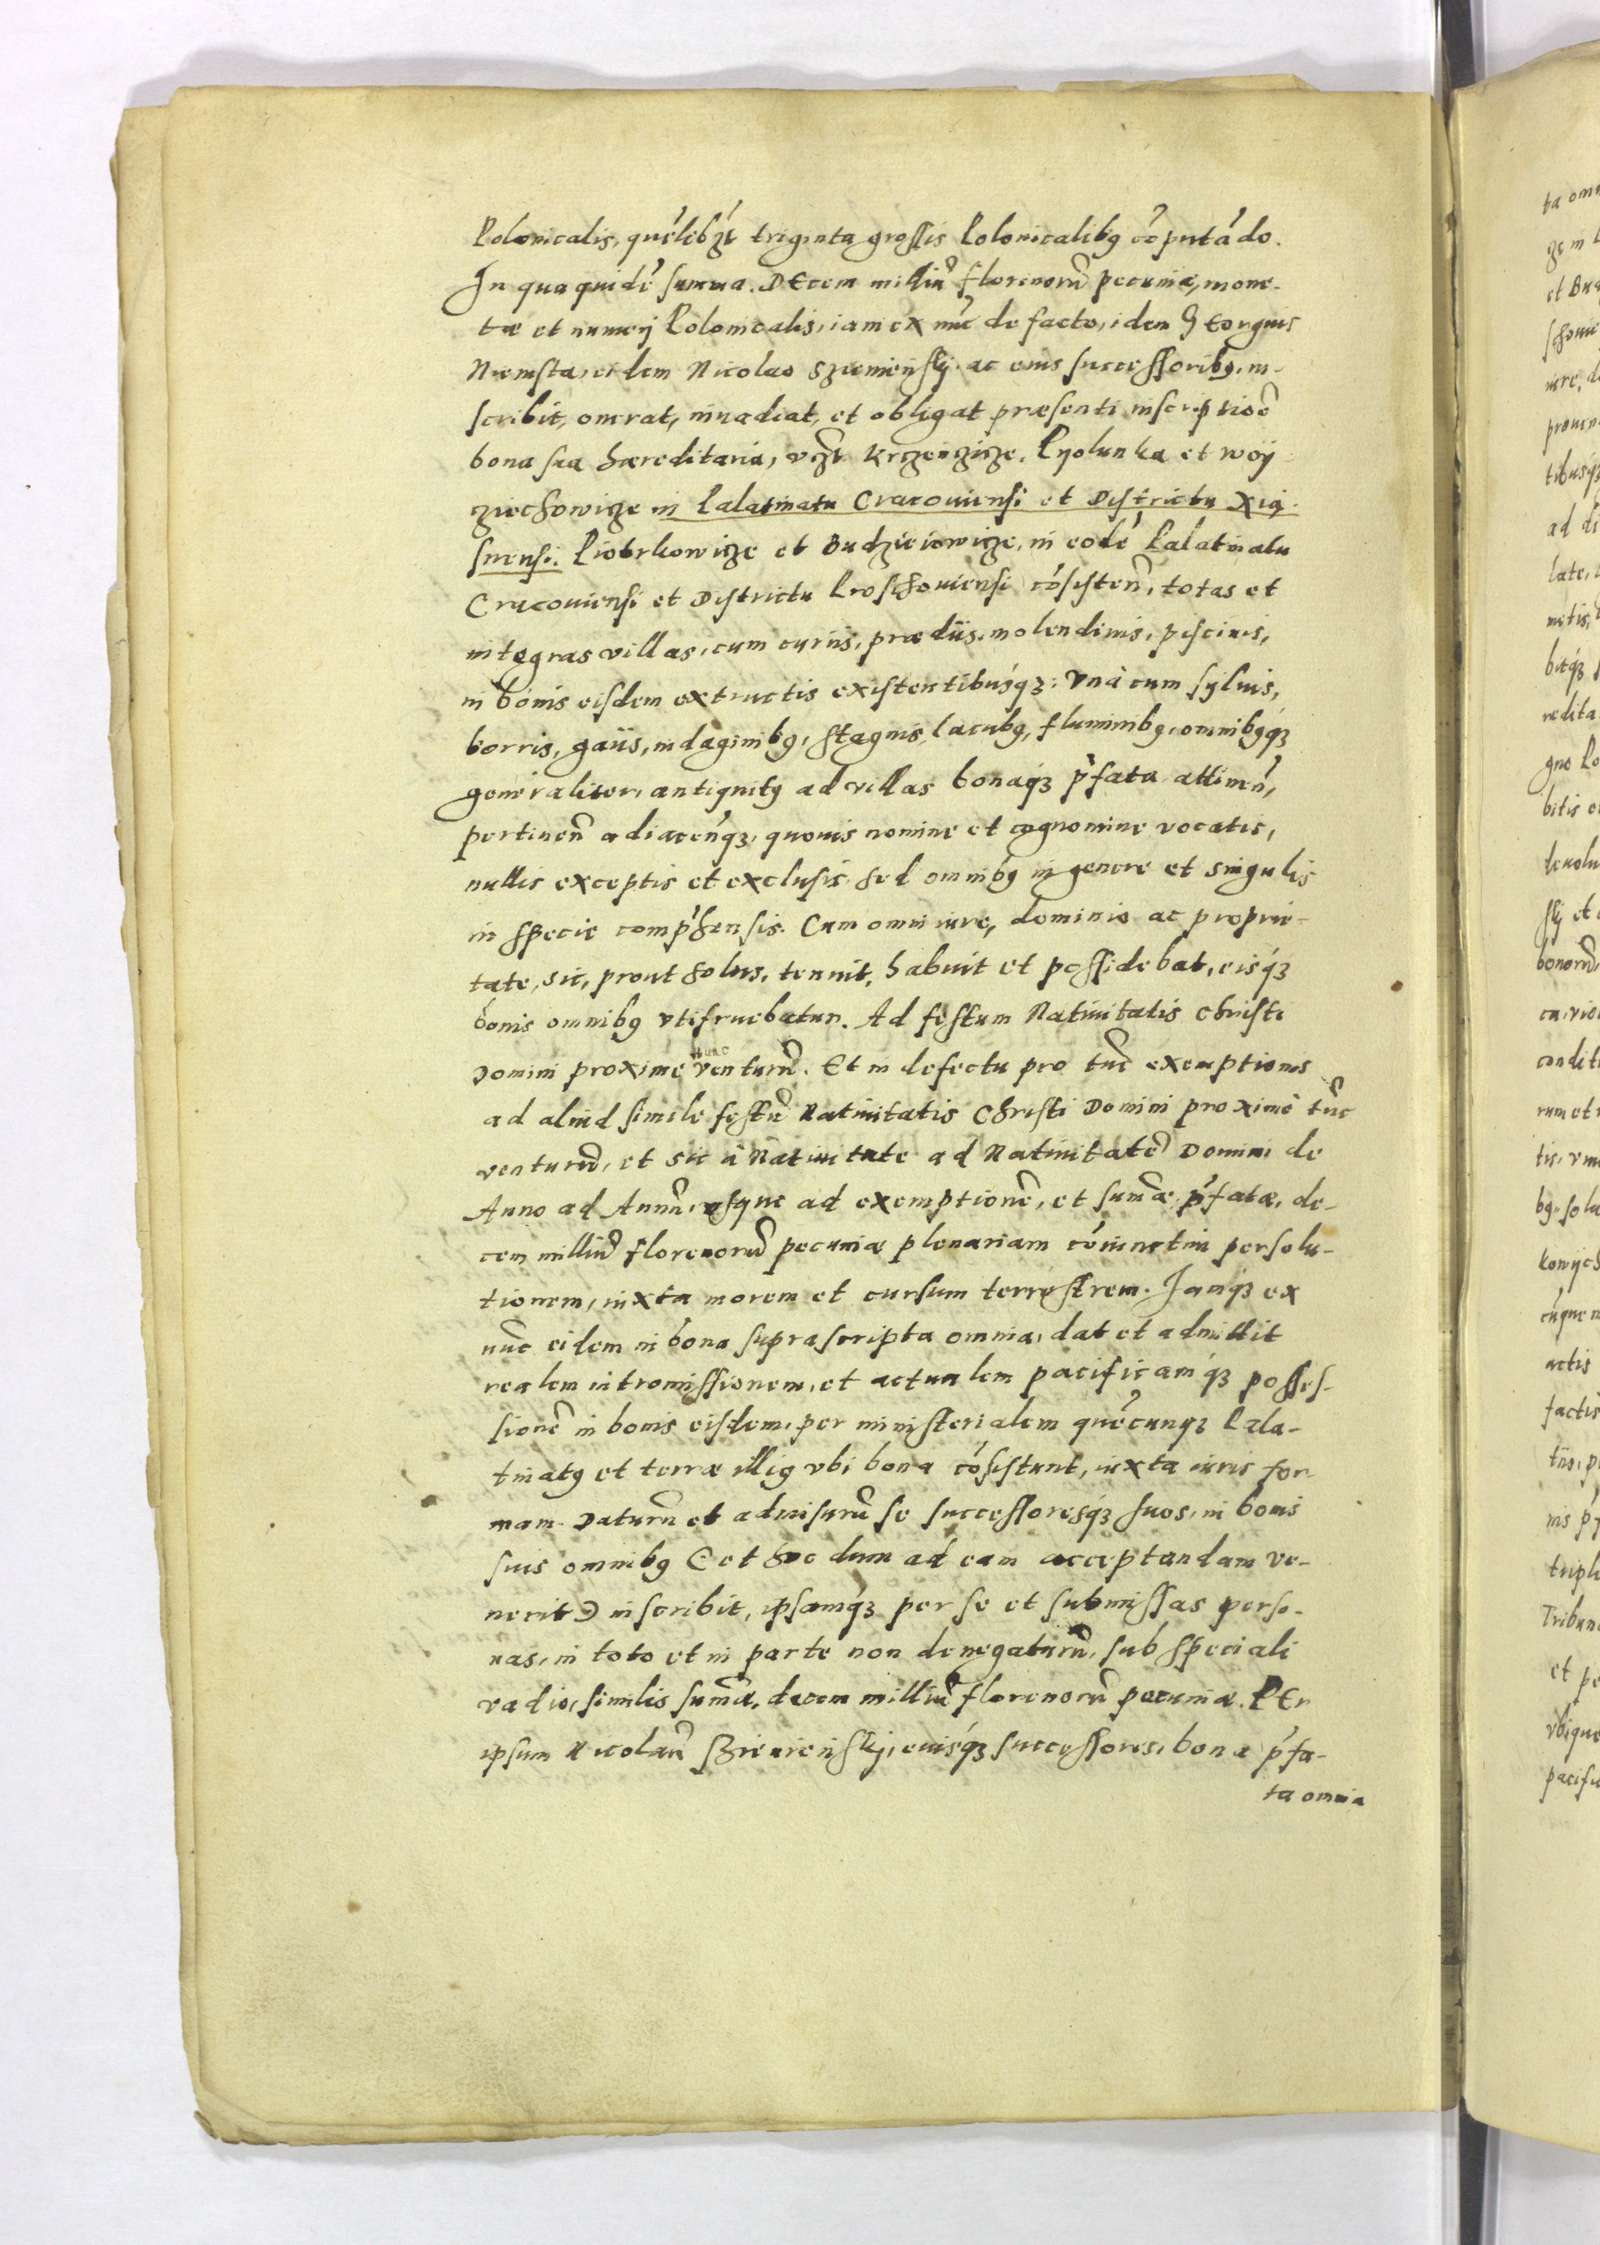 Polonicalis, quēlibꝫt triginta grossis Polonicalibꝰ cōputādo.
In qua quidē summa. DEcem milliū florenorū pecuniæ, mone-
tæ et numerj Polonicalis, iam ex nūc de facto, idem Georgius
Niemsta, eidem Nicolao Sziemienskij ac eius successoribꝰ, in-
scribit, onerat, inuadiat, et obligat præsenti inscriptioē
bona sua hæreditaria, vꝫt Krzenczicze, Pyolunka et Woy
ziechowicze in Palatinatu Cracouiensi et Districtu Xią-
snensi. Piotrkowicze et Budzieiowicze, in eodē Palatinatu
Cracouiensi et Districtu Proschouiensi cōsisteñ, totas et
integras villas, cum curiis, prædiis, molendinis, piscinis,
in bonis eisdem extructis existentibúsqꝫ: Vnà cum syluis,
borris, gaiis, indaginibꝰ, stagnis, lacubꝰ, fluminibꝰ, omnibꝰqꝫ
generaliter, antiquitꝰ ad villas bonaqꝫ p̄fata attineñ,
pertineñ adiaceñqꝫ, quouis nomine et cognomine vocatis,
nullis exceptis et exclusis, sed omnibꝰ in genere et singulis
in specie comp̄hensis. Cum omni iure, dominio ac proprie-
tate, sic, prout solus, tenuit, habuit et possidebat, eisqꝫ
bonis omnibꝰ vtifruebatur. Ad festum Natiuitatis Christi
Domini proximè nunc venturū. Et in defectu pro tūc exemptionis
ad aliud simile festū Natiuitatis Christi Domini proximè tūc
venturū, et sic à Natiuitate ad Natiuitatē Domini de
Anno ad Annū, vsque ad exemptionē, et sum̄æ p̄fatæ, de-
cem milliū florenorū pecuniæ plenariam cōiunctim persolu-
tionem, iuxta morem et cursum terrestrem. Iamqꝫ ex
nūc eidem in bona suprascripta omnia, dat et admittit
realem intromissionem, et actualem pacificamqꝫ posses-
sionē in bonis eisdem, per ministerialem quēcunqꝫ Pala-
tinatꝰ et terræ illiꝰ vbi bona cōsistunt, iuxta iuris for-
mam. Daturū et admisurū se successoresqꝫ suos, in bonis
suis omnibꝰ (et hoc dum ad eam acceptandam ve-
nerit) inscribit, ipsamqꝫ per se et submissas perso-
nas, in toto et in parte non denegaturū, sub speciali
vadio, similis sum̄æ, decem milliū florenorū pecuniæ. PEr
ipsum Nicolaū Szieienskij, eiusqꝫ successores, bona p̄fa-
ta omnia